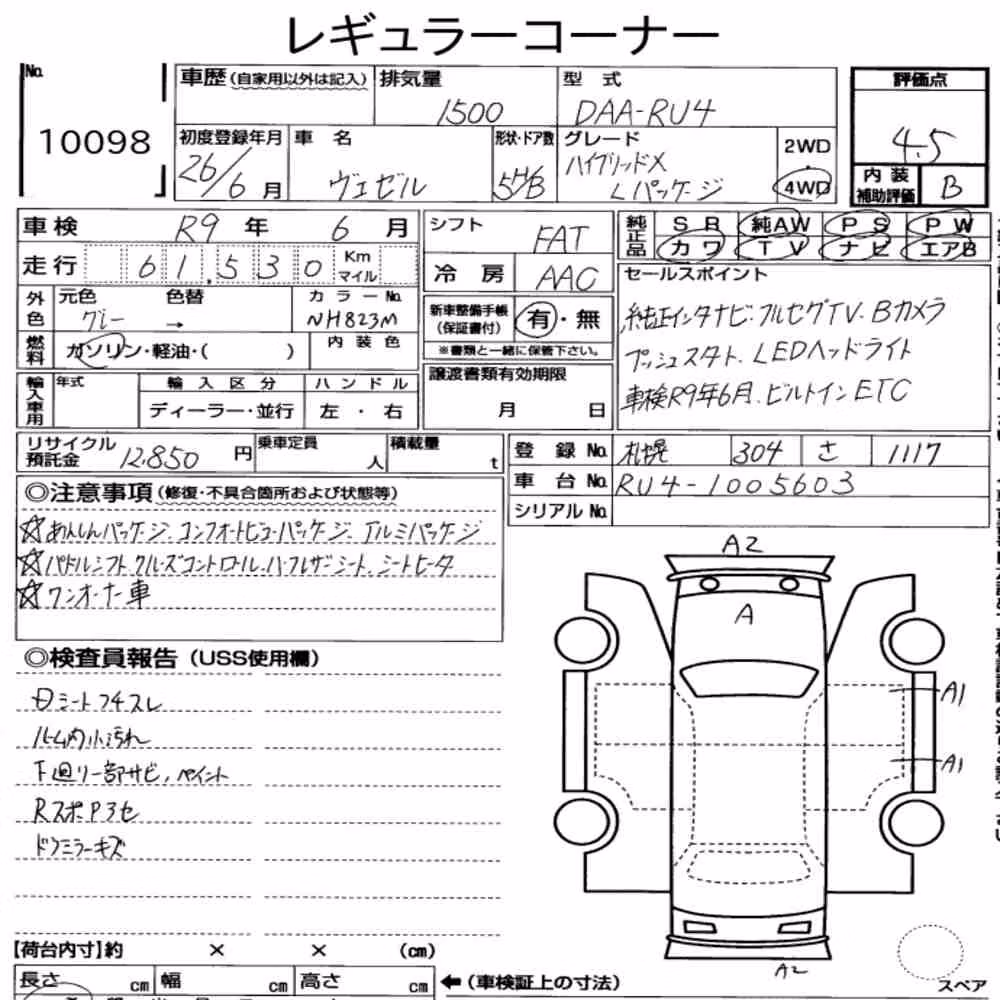 レギュラーコーナー
No. 10098
車歴 (自家用以外は記入)
排気量 1500
型 式 DAA-RU4
評価点 4.5
初度登録年月 26/6 月
車 名 ヴェゼル
形状・ドア数 5H/B
グレード ハイブリッドX Lパッケージ
2WD
4WD
内装補助評価 B
車検 R9 年 6 月
走行 61,530 Km マイル
シフト FAT
冷 房 AAC
純正品 SR 純AW PS PW
カワ TV ナビ エアB
外色 元色 グレー 色替 →
カラーNo. NH823M
燃料 ガソリン・軽油・( )
内装色
新車整備手帳 (保証書付) 有・無
※書類と一緒に保管下さい。
セールスポイント
純正インタナビ・フルセグTV. Bカメラ
プッシュスタート. LEDヘッドライト
車検R9年6月. ビルトインETC
輸入車用 年式
輸入区分 ディーラー・並行
ハンドル 左 ・ 右
譲渡書類有効期限
月 日
リサイクル預託金 12,850 円
乗車定員 人
積載量 t
登 録 No. 札幌 304 さ 1117
車 台 No. RU4-1005603
シリアル No.
◎注意事項(修復・不具合箇所および状態等)
☆あんしんパッケージ. コンフォートビューパッケージ. アルミパッケージ
☆パドルシフト. クルーズコントロール. ハーフレザーシート. シートヒータ
☆ワンオーナー車
◎検査員報告(USS使用欄)
シートフチスレ
ルーム内小汚れ
下廻り一部サビ, ペイント
RスポP3セ
ドアミラーキズ
A2
A
A1
A1
A2
スペア
【荷台内寸】約 × × (cm)
長さ cm 幅 cm 高さ cm
←(車検証上の寸法)